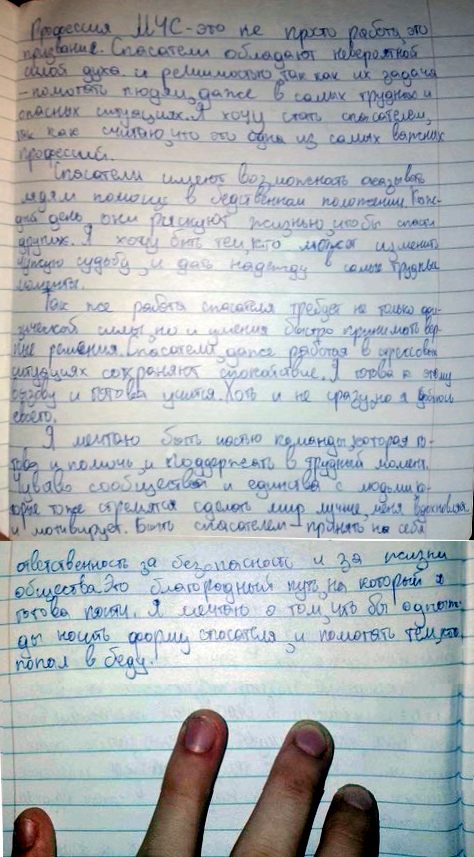 Профессия МЧС - это не просто работа, это
призвание. Спасатели обладают невероятной
силой духа и решимостью, так как их задача
- помогать людям, даже в самых трудных и
опасных ситуациях. Я хочу стать спасателем,
так как считаю, что это одна из самых важных
профессий.
Спасатели имеют возможность оказывать
людям помощь в бедственном положении. Каж-
дый день они рискуют жизнью, чтобы спасти
других. Я хочу быть тем, кто может изменить
чужую судьбу, и дать надежду в самые трудные
моменты.
Так же работа спасателя требует не только фи-
зической силы, но и умения быстро принимать вер-
ные решения. Спасатели, даже работая в стрессовых
ситуациях сохраняют спокойствие. Я готова к этому
вызову и готова учится. Хоть и не сразу, но я добьюсь
своего.
Я мечтаю быть частью команды, которая го-
това и помочь, и поддержать в трудный момент.
Чувство сообщества и единства с людьми, ко-
торые тоже стремятся сделать мир лучше, меня вдохновляет
и мотивирует. Быть спасателем - принять на себя
ответственность за безопасность и за жизни
общества. Это благородный путь, на который я
готова пойти. Я мечтаю о том, что бы однаж-
ды носить форму спасателя, и помогать тем, кто
попал в беду.